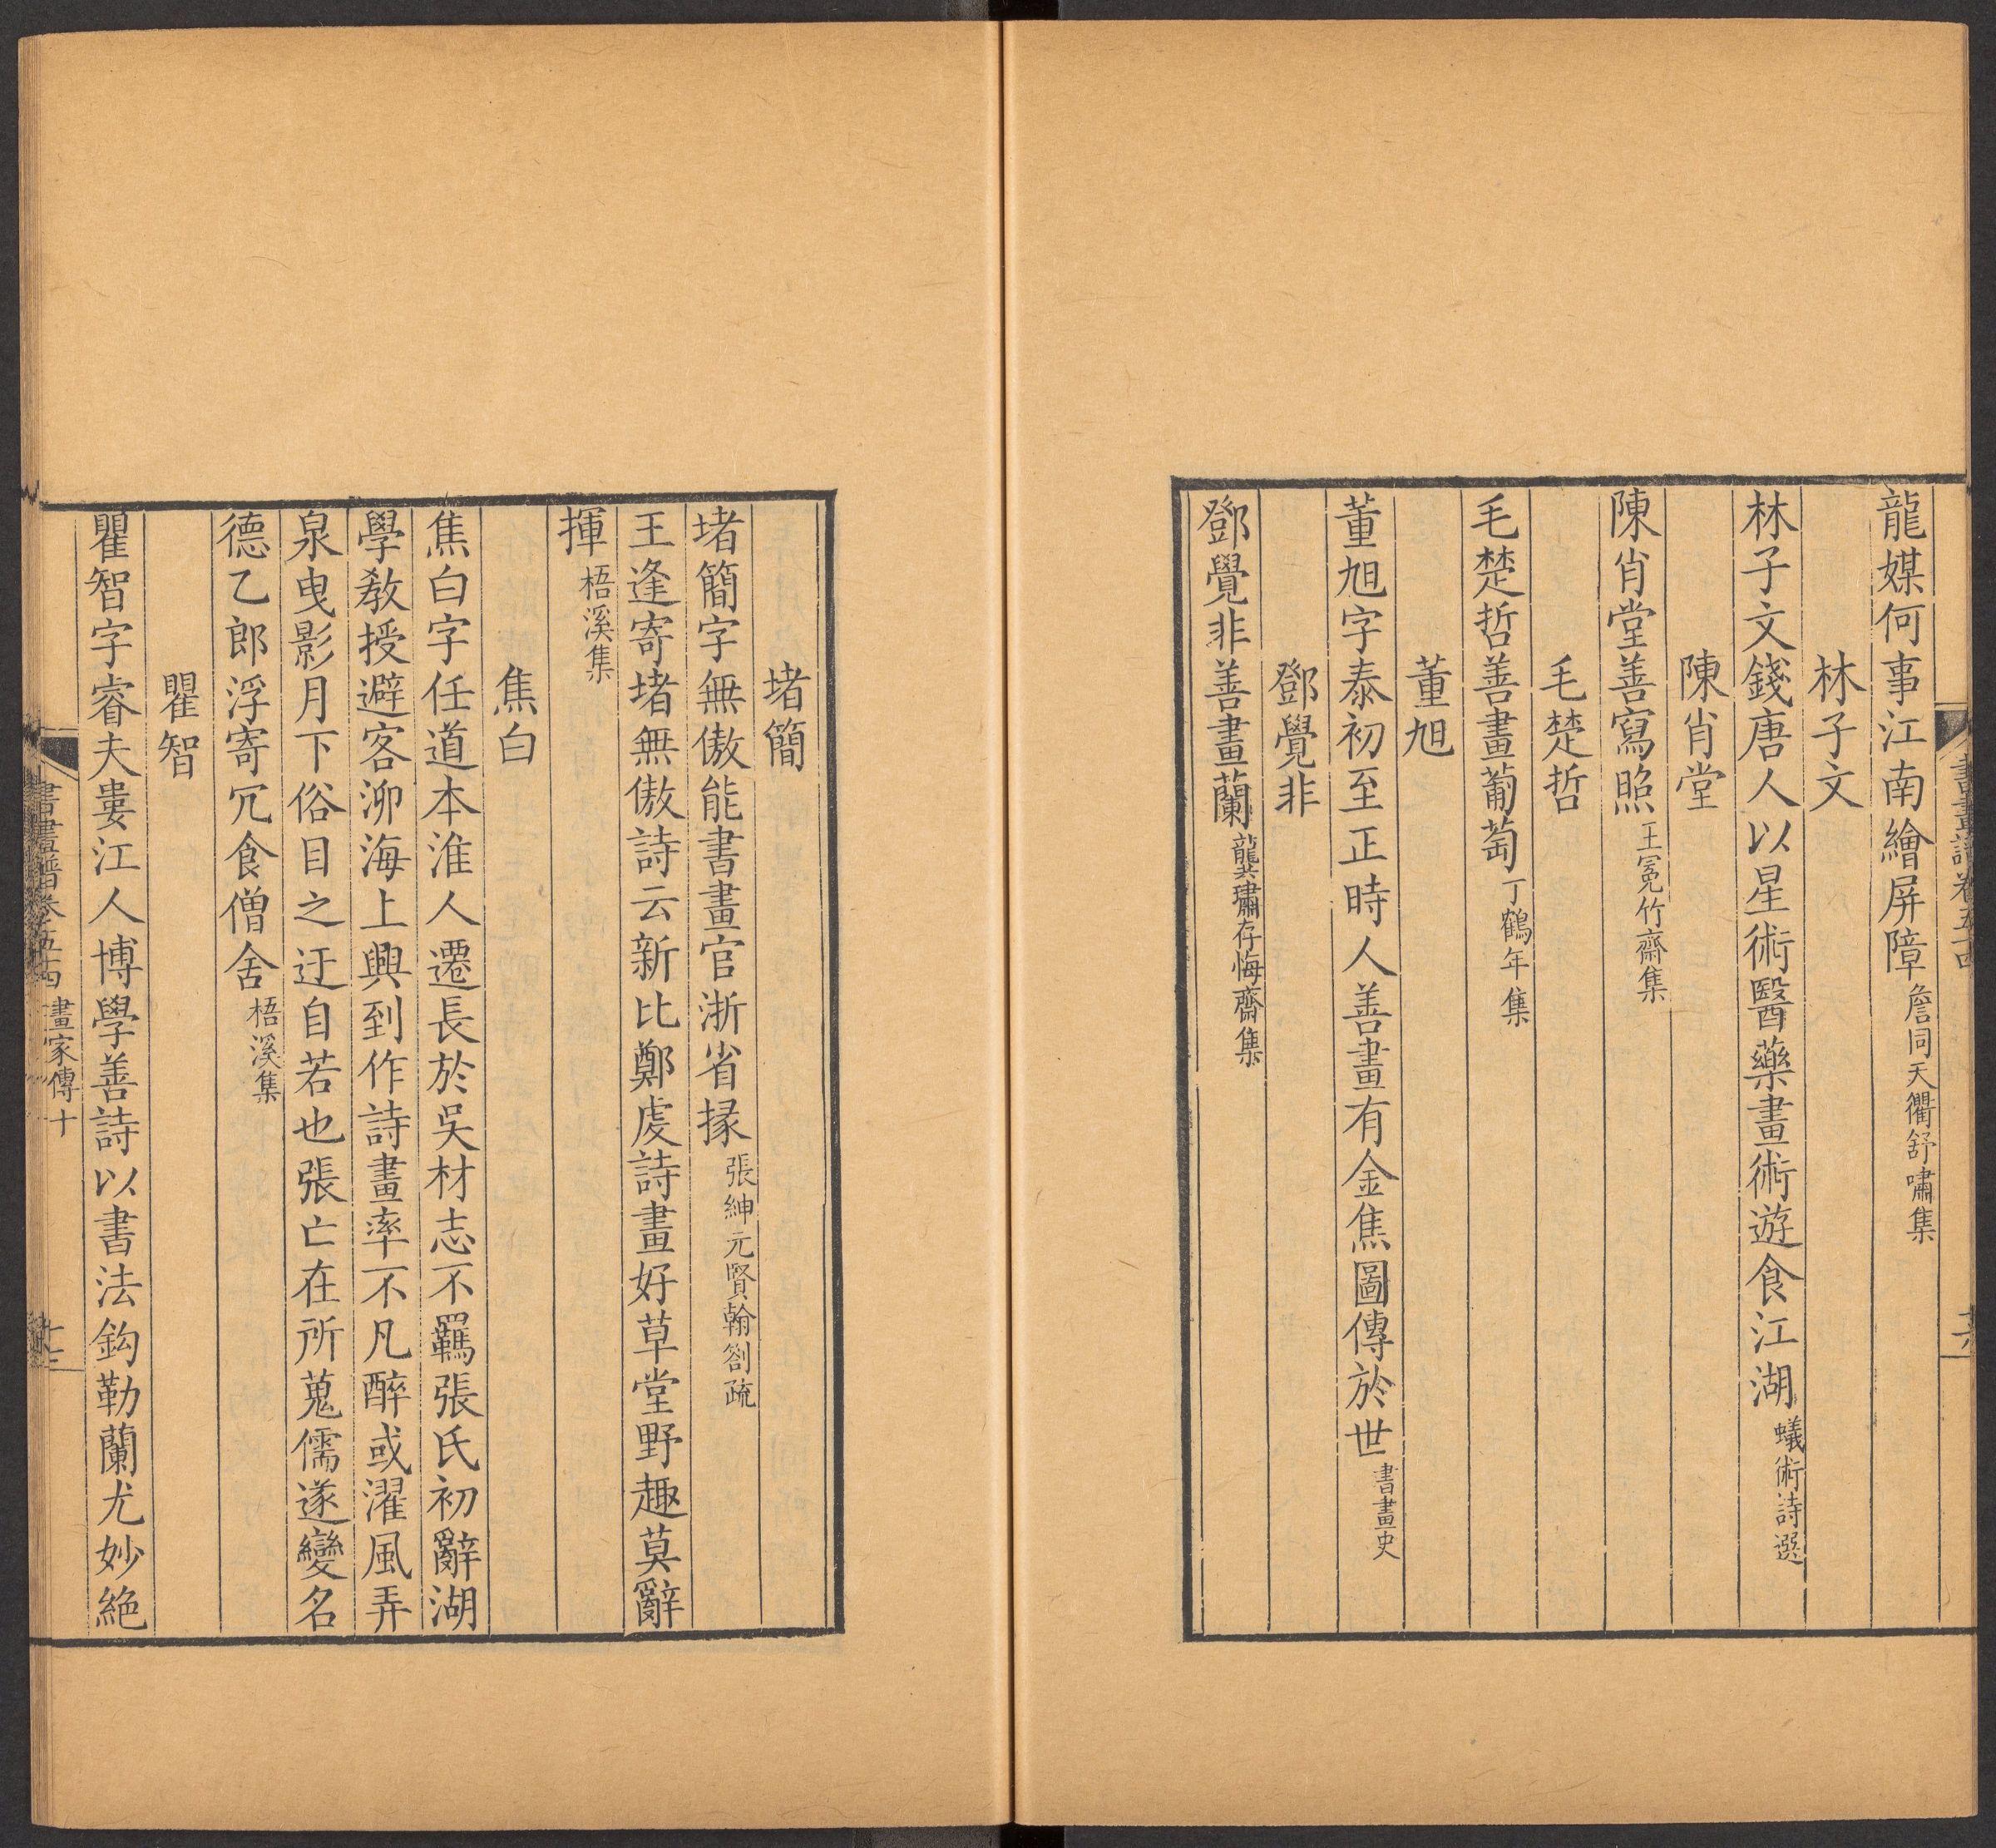 龍媒何事江南繪屏障詹同天衢舒嘯集
林子文
林子文錢唐人以星術醫藥畫術遊食江湖蟻術詩選
陳肖堂
陳肖堂善寫照王冕竹齋集
毛楚哲
毛楚哲善畫葡萄丁鶴年集
董旭
董旭字泰初至正時人善畫有金焦圖傳於世書畫史
鄧覺非
鄧覺非善畫蘭龔璛存悔齋集
堵簡
堵簡字無傲能書畫官浙省掾張紳元賢翰劄疏
王逢寄堵無傲詩云新比鄭虔詩畫好草堂野趣莫辭
揮梧溪集
焦白
焦白字任道本淮人遷長於吳材志不羈張氏初辭湖
學教授避客泖海上興到作詩畫率不凡醉或濯風弄
泉曳影月下俗目之迂自若也張亡在所蒐儒遂變名
德乙郎浮寄冗食僧舍梧溪集
瞿智
瞿智字睿夫婁江人博學善詩以書法鈎勒蘭尤妙絕
書畫譜卷五十四 畫家傳十